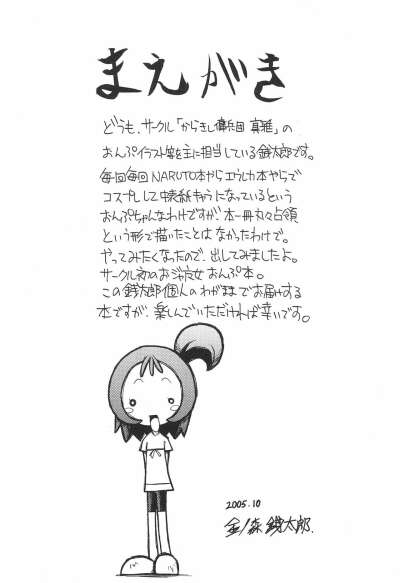 まえがき
どうも、サークル「からきし傭兵団 真雅」の
おんぷイラスト等を主に担当している銭太郎です。
毎回毎回NARUTO本やらエウレカ本やらで
コスプレして中表紙キャラになっているという
おんぷちゃんなわけですが、本一冊丸々占領
という形で描いたことはなかったわけで。
やってみたくなったので、出してみましたよ。
サークル初のおジャ魔女おんぷ本。
この銭太郎個人のわがままでお届けする
本ですが、楽しんでいただければ幸いです。
2005.10
金ノ森 銭太郎.